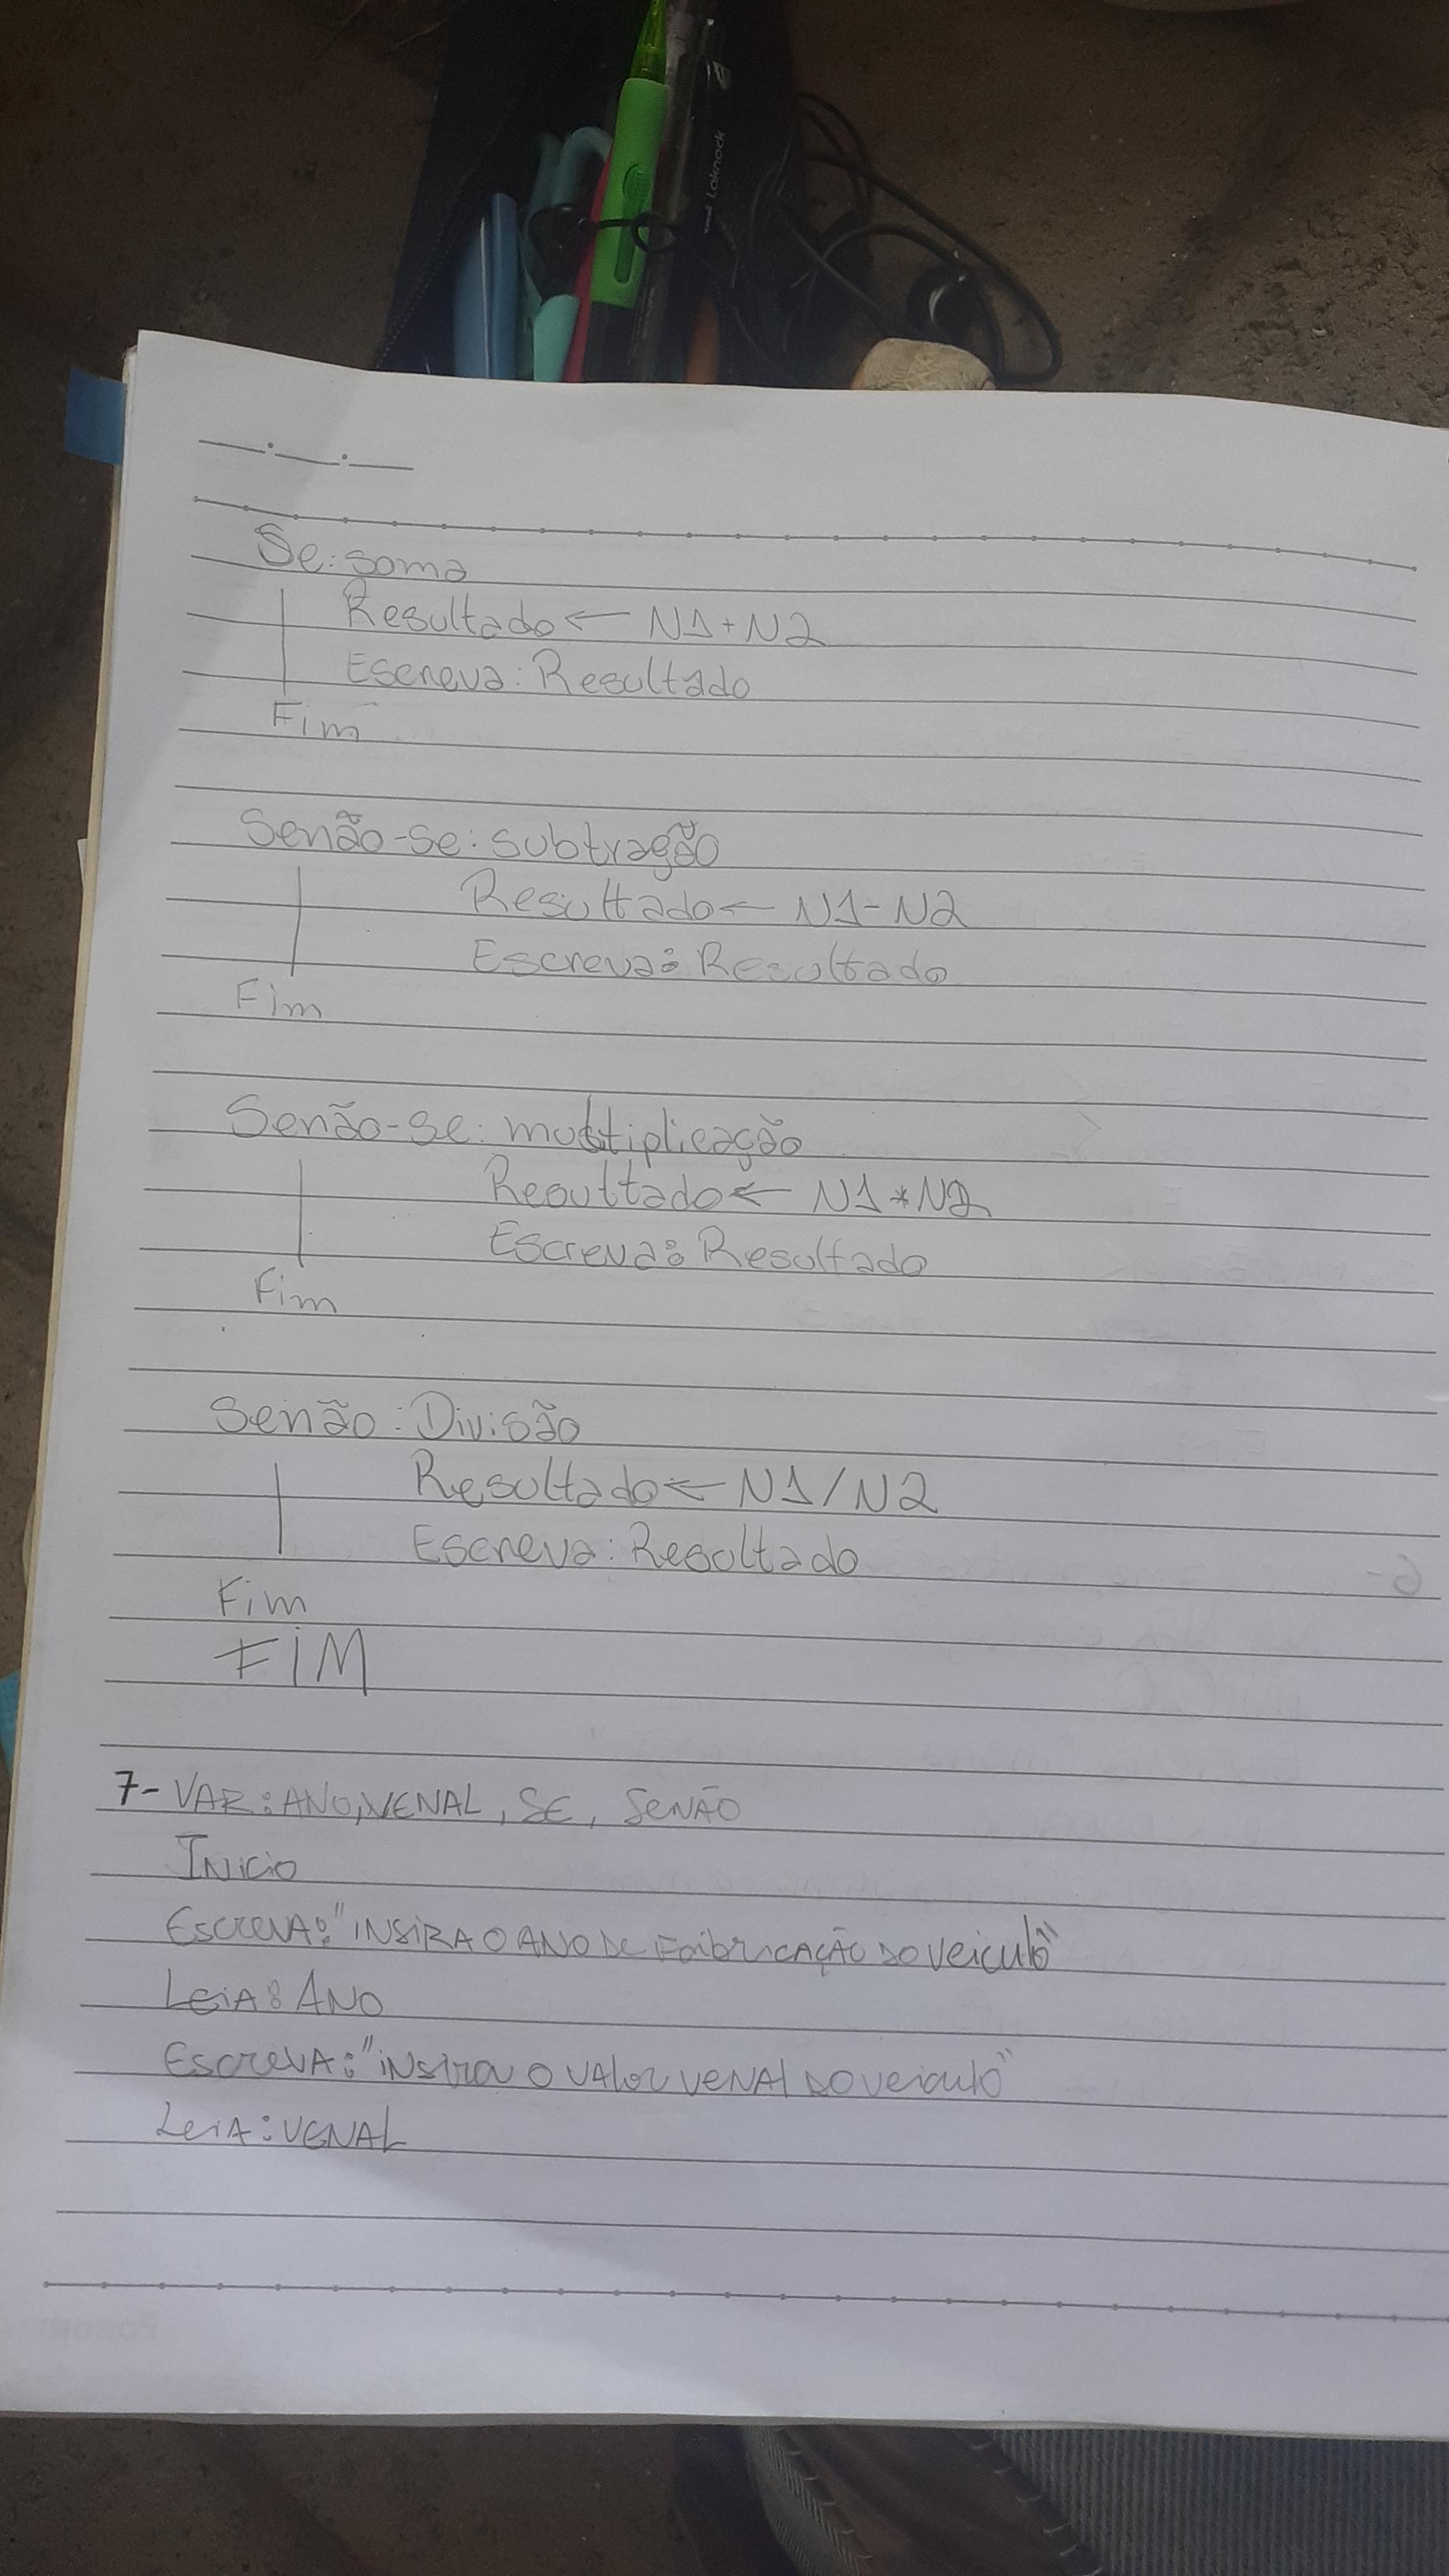 Loknock
Se: soma
Resultado ← N1 + N2
Escreva: Resultado
Fim
Senão-se: subtração
Resultado ← N1 - N2
Escreva: Resultado
Fim
Senão-se: multiplicação
Resultado ← N1 * N2
Escreva: Resultado
Fim
Senão: Divisão
Resultado ← N1 / N2
Escreva: Resultado
Fim
FIM
7- VAR: ANO, VENAL, SE, SENÃO
INICIO
ESCREVA: "INSIRA O ANO DE FABRICAÇÃO DO VEICULO"
LEIA: ANO
ESCREVA: "INSIRA O VALOR VENAL DO VEICULO"
LEIA: VENAL